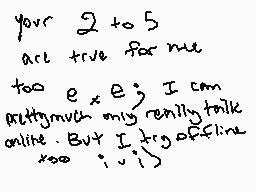 your 2 to 5
are true for me
too e x e; I can
prettymuch only really talk
online. But I try offline
too i v i;